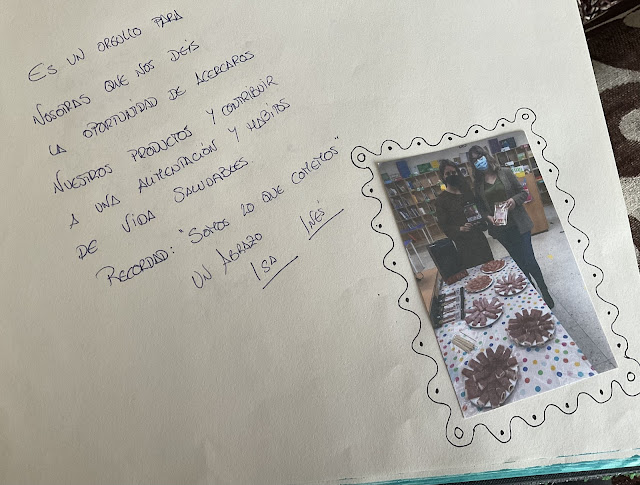 ES UN ORGULLO PARA
NOSOTRAS QUE NOS DEIS
LA OPORTUNIDAD DE ACERCAROS
NUESTROS PRODUCTOS Y CONTRIBUIR
A UNA ALIMENTACIÓN Y HÁBITOS
DE VIDA SALUDABLES.
RECORDAD: "SOMOS LO QUE COMEMOS"
UN ABRAZO
ISA INÉS